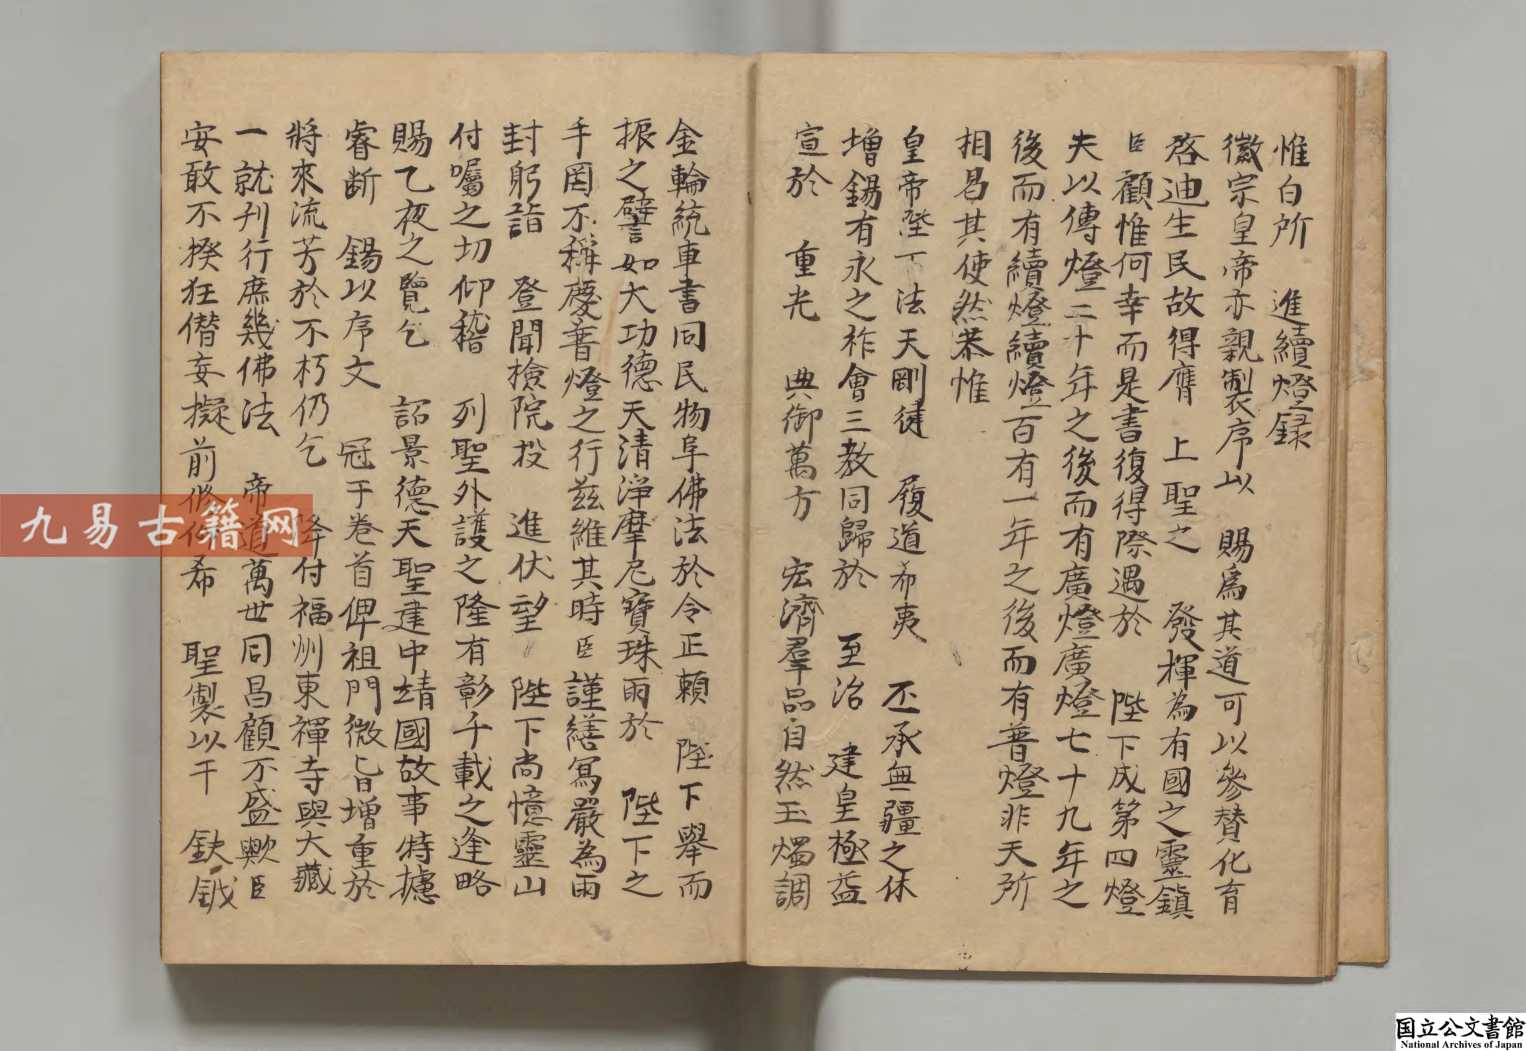 惟白所　進續燈錄
徽宗皇帝亦親製序以　賜爲其道可以參賛化育
啓迪生民故得膺　上聖之　發揮為有國之靈鎮
臣顧惟何幸而是書復得際遇於　陛下成第四燈
夫以傳燈二十年之後而有廣燈廣燈七十九年之
後而有續燈續燈百有一年之後而有普燈非天所
相曷其使然恭惟
皇帝陛下法天剛健　履道希夷　丕承無疆之休
增錫有永之祚會三教同歸於　至治　建皇極益
宣於　重光　典御萬方　宏濟羣品自然玉燭調
金輪統車書同民物阜佛法於今正賴　陛下舉而
振之譬如大功德天清淨摩尼寶珠雨於　陛下之
手罔不稱慶普燈之行茲維其時臣謹繕寫嚴為兩
封躬詣　登聞檢院投　進伏望　陛下尚憶靈山
付囑之切仰稽　列聖外護之隆有彰千載之逢略
賜乙夜之覽乞　詔景德天聖建中靖國故事特攄
睿斷　錫以序文　冠于卷首俾祖門微旨增重於
將來流芳於不朽仍乞　降付福州東禪寺與大藏
一就刋行庶幾佛法　帝道萬世同昌顧不盛歟臣
安敢不揆狂僭妄擬前修　希　聖製以干　鈇鉞
九易古籍网
国立公文書館
National Archives of Japan